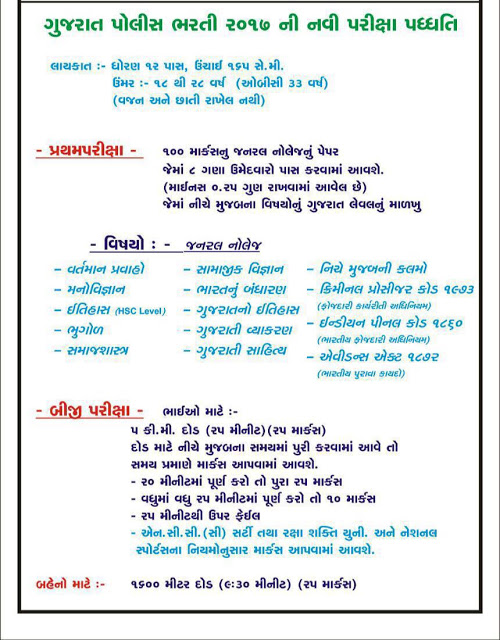 ગુજરાત પોલીસ ભરતી ૨૦૧૭ ની નવી પરીક્ષા પધ્ધતિ
લાયકાત :- ધોરણ ૧૨ પાસ, ઉંચાઈ ૧૬૫ સે.મી.
ઉંમર :- ૧૮ થી ૨૮ વર્ષ (ઓબીસી 33 વર્ષ)
(વજન અને છાતી રાખેલ નથી)
- પ્રથમપરીક્ષા - ૧૦૦ માર્કસનુ જનરલ નોલેજનું પેપર
જેમાં ૮ ગણા ઉમેદવારો પાસ કરવામાં આવશે.
(માઈનસ ૦.૨૫ ગુણ રાખવામાં આવેલ છે)
જેમાં નીચે મુજબના વિષયોનું ગુજરાત લેવલનું માળખુ
- વિષયો : - જનરલ નોલેજ
– વર્તમાન પ્રવાહો – સામાજીક વિજ્ઞાન – નિચે મુજબની કલમો
– મનોવિજ્ઞાન – ભારતનું બંધારણ – ક્રિમીનલ પ્રોસીજર કોડ ૧૯૭૩
– ઈતિહાસ (HSC Level) – ગુજરાતનો ઈતિહાસ (ફોજદારી કાર્યરીતી અધિનિયમ)
– ભુગોળ – ગુજરાતી વ્યાકરણ – ઈન્ડીયન પીનલ કોડ ૧૮૬૦
(ભારતીય ફોજદારી અધિનિયમ)
– સમાજશાસ્ત્ર – ગુજરાતી સાહિત્ય – એવીડન્સ એક્ટ ૧૮૭૨
(ભારતીય પુરાવા કાયદો)
- બીજી પરીક્ષા - ભાઈઓ માટે :-
૫ કી.મી. દોડ (૨૫ મીનીટ)(૨૫ માર્કસ)
દોડ માટે નીચે મુજબના સમયમાં પુરી કરવામાં આવે તો
સમય પ્રમાણે માર્કસ આપવામાં આવશે.
- ૨૦ મીનીટમાં પૂર્ણ કરો તો પુરા ૨૫ માર્કસ
- વધુમાં વધુ ૨૫ મીનીટમાં પૂર્ણ કરો તો ૧૦ માર્કસ
- ૨૫ મીનીટથી ઉપર ફેઈલ
- એન.સી.સી.(સી) સર્ટી તથા રક્ષા શક્તિ યુની. અને નેશનલ
સ્પોર્ટસના નિયમોનુસાર માર્કસ આપવામાં આવશે.
બહેનો માટે :- ૧૬૦૦ મીટર દોડ (૯:૩૦ મીનીટ) (૨૫ માર્કસ)